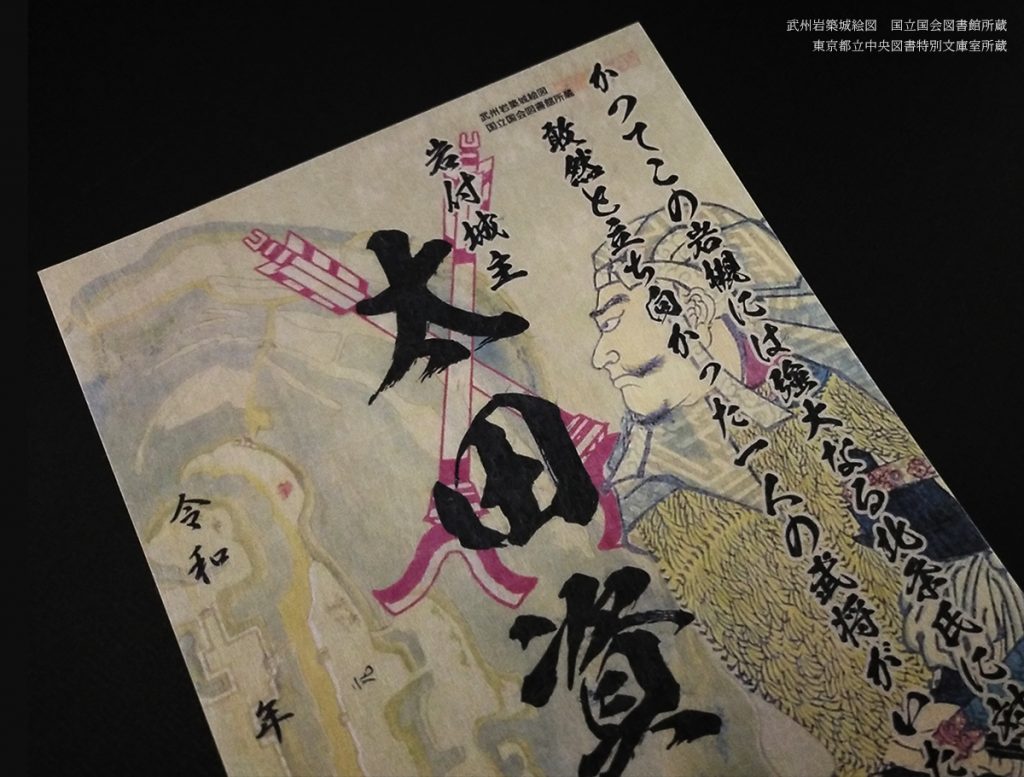 武州岩築城絵図　国立国会図書館所蔵
東京都立中央図書特別文庫室所蔵
武州岩築城絵図
国立国会図書館所蔵
かつてこの岩槻には強大なる北条氏に対
敢然と立ち向かった一人の武将がいた
岩付城主
太田資
令和
年